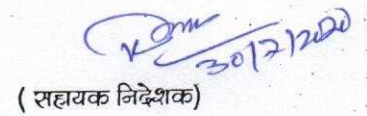 30/7/2020
( सहायक निदेशक)